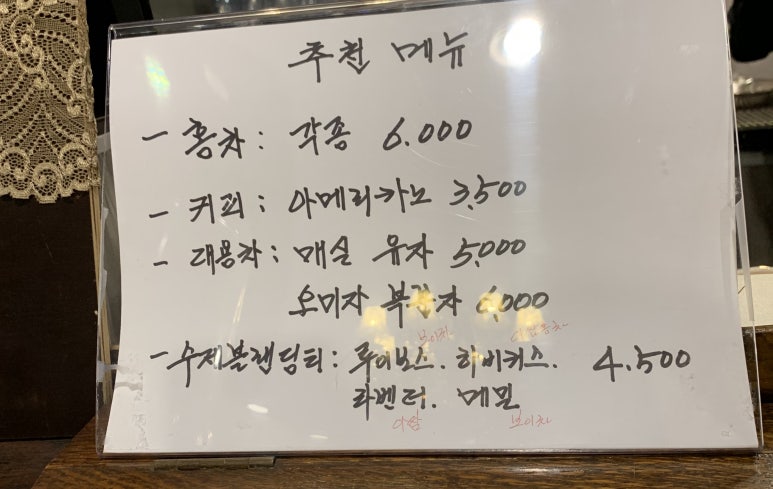 추천 메뉴
- 홍차: 각종 6.000
- 커피: 아메리카노 3,500
- 대용차: 매실 유자 5,000
오미자 6,000
보이차
- 수제블랜딩티: 루이보스. 히비커스. 4.500
라벤더. 메밀
아쌈 보이차